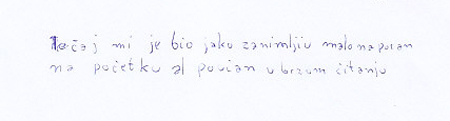 Tečaj mi je bio jako zanimljiv malo naporan
na početku al poučan u brzom čitanju